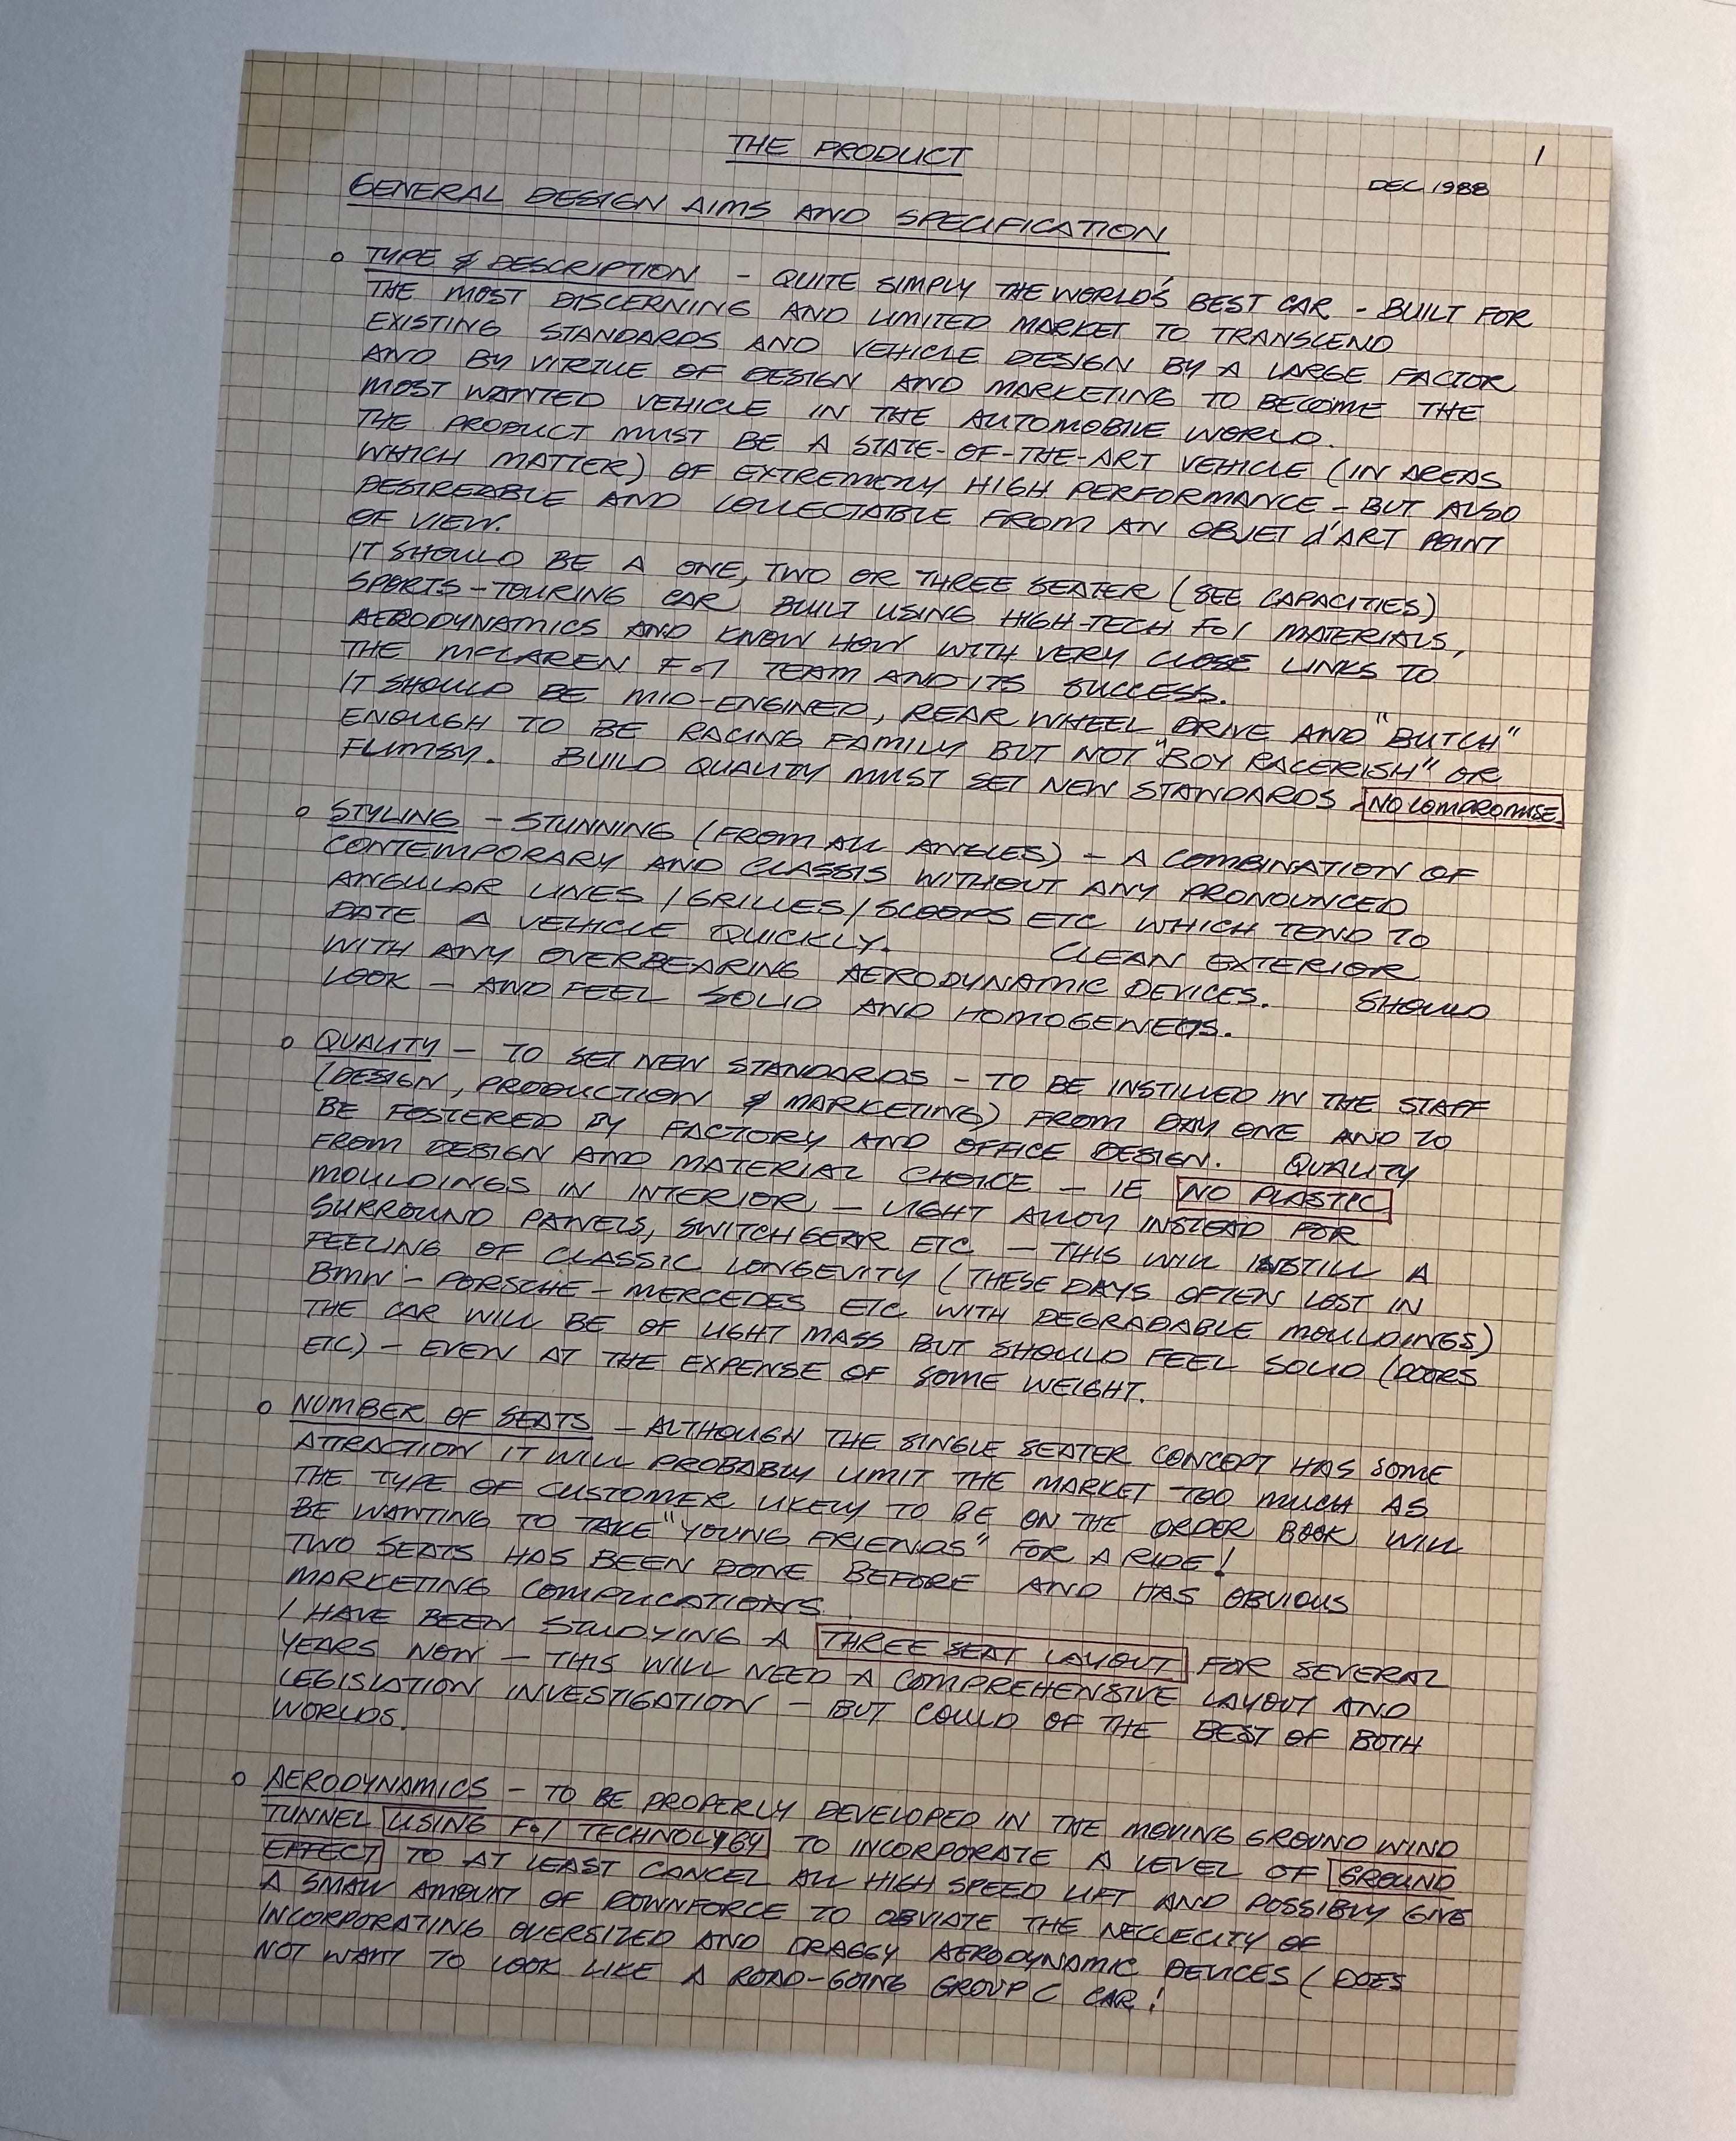 THE PRODUCT
1
DEC 1988
GENERAL DESIGN AIMS AND SPECIFICATION
o TYPE & DESCRIPTION - QUITE SIMPLY THE WORLD'S BEST CAR - BUILT FOR
THE MOST DISCERNING AND LIMITED MARKET TO TRANSCEND
EXISTING STANDARDS AND VEHICLE DESIGN BY A LARGE FACTOR
AND BY VIRTUE OF DESIGN AND MARKETING TO BECOME THE
MOST WANTED VEHICLE IN THE AUTOMOBILE WORLD.
THE PRODUCT MUST BE A STATE-OF-THE-ART VEHICLE (IN AREAS
WHICH MATTER) OF EXTREMELY HIGH PERFORMANCE - BUT ALSO
DESIREABLE AND COLLECTABLE FROM AN OBJET d'ART POINT
OF VIEW.
IT SHOULD BE A ONE, TWO OR THREE SEATER (SEE CAPACITIES)
SPORTS-TOURING CAR, BUILT USING HIGH-TECH Fo1 MATERIALS,
AERODYNAMICS AND KNOW HOW WITH VERY CLOSE LINKS TO
THE McLAREN Fo1 TEAM AND ITS SUCCESS.
IT SHOULD BE MID-ENGINED, REAR WHEEL DRIVE AND "BUTCH"
ENOUGH TO BE RACING FAMILY BUT NOT "BOY RACERISH" OR
FLIMSY. BUILD QUALITY MUST SET NEW STANDARDS. NO COMPROMISE.
o STYLING - STUNNING (FROM ALL ANGLES) - A COMBINATION OF
CONTEMPORARY AND CLASSIS WITHOUT ANY PRONOUNCED
ANGULAR LINES / GRILLES / SCOOPS ETC WHICH TEND TO
DATE A VEHICLE QUICKLY. CLEAN EXTERIOR
WITH ANY OVERBEARING AERODYNAMIC DEVICES. SHOULD
LOOK - AND FEEL SOLID AND HOMOGENEOUS.
o QUALITY - TO SET NEW STANDARDS - TO BE INSTILLED IN THE STAFF
(DESIGN, PRODUCTION & MARKETING) FROM DAY ONE AND TO
BE FOSTERED BY FACTORY AND OFFICE DESIGN. QUALITY
FROM DESIGN AND MATERIAL CHOICE - IE NO PLASTIC
MOULDINGS IN INTERIOR, - LIGHT ALLOY INSTEAD FOR
SURROUND PANELS, SWITCHGEAR ETC - THIS WILL INSTILL A
FEELING OF CLASSIC LONGEVITY (THESE DAYS OFTEN LOST IN
BMW - PORSCHE - MERCEDES ETC WITH DEGRADABLE MOULDINGS)
THE CAR WILL BE OF LIGHT MASS BUT SHOULD FEEL SOLID (DOORS
ETC) - EVEN AT THE EXPENSE OF SOME WEIGHT.
o NUMBER OF SEATS - ALTHOUGH THE SINGLE SEATER CONCEPT HAS SOME
ATTRACTION IT WILL PROBABLY LIMIT THE MARKET TOO MUCH AS
THE TYPE OF CUSTOMER LIKELY TO BE ON THE ORDER BOOK WILL
BE WANTING TO TAKE "YOUNG FRIENDS" FOR A RIDE!
TWO SEATS HAS BEEN DONE BEFORE AND HAS OBVIOUS
MARKETING COMPLICATIONS
I HAVE BEEN STUDYING A THREE SEAT LAYOUT FOR SEVERAL
YEARS NOW - THIS WILL NEED A COMPREHENSIVE LAYOUT AND
LEGISLATION INVESTIGATION - BUT COULD OF THE BEST OF BOTH
WORLDS.
o AERODYNAMICS - TO BE PROPERLY DEVELOPED IN THE MOVING GROUND WIND
TUNNEL USING Fo1 TECHNOLOGY TO INCORPORATE A LEVEL OF GROUND
EFFECT TO AT LEAST CANCEL ALL HIGH SPEED LIFT AND POSSIBLY GIVE
A SMALL AMOUNT OF DOWNFORCE TO OBVIATE THE NECCECITY OF
INCORPORATING OVERSIZED AND DRAGGY AERODYNAMIC DEVICES (DOES
NOT WANT TO LOOK LIKE A ROAD-GOING GROUP C CAR!